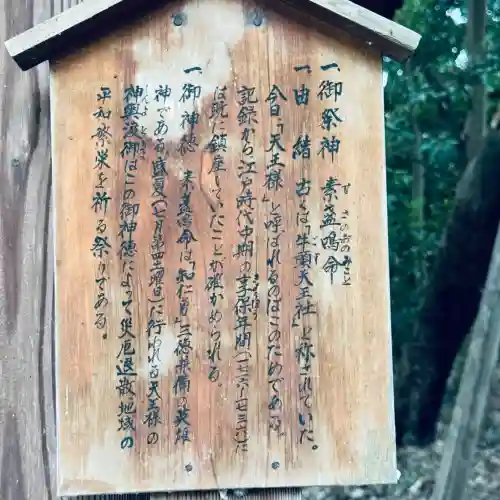 一、御祭神 素盞嗚命
すさのおのみこと
一、由緒 古くは「牛頭天王社」と称されていた。
ごず
今日「天王様」と呼ばれるのはこのためである。
記録から江戸時代中期の享保年間(一七一六〜一七三六)に
きょうほう
は既に鎮座していたことが確かめられる。
一、御神徳 素盞嗚命は「知仁勇」三徳兼備の英雄
神である。盛夏(七月第四土曜日)に行われる天王様の
神輿渡御はこの御神徳によって災厄退散、地域の
みこしとぎょ
平和繁栄を祈る祭りである。